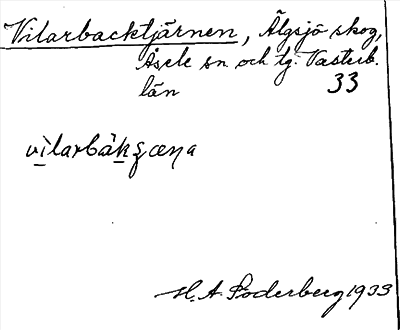 Vilarbacktjärnen, Älgsjö skog,
Åsele sn och tg. Västerb.
län 33
H. A. Söderberg 1933